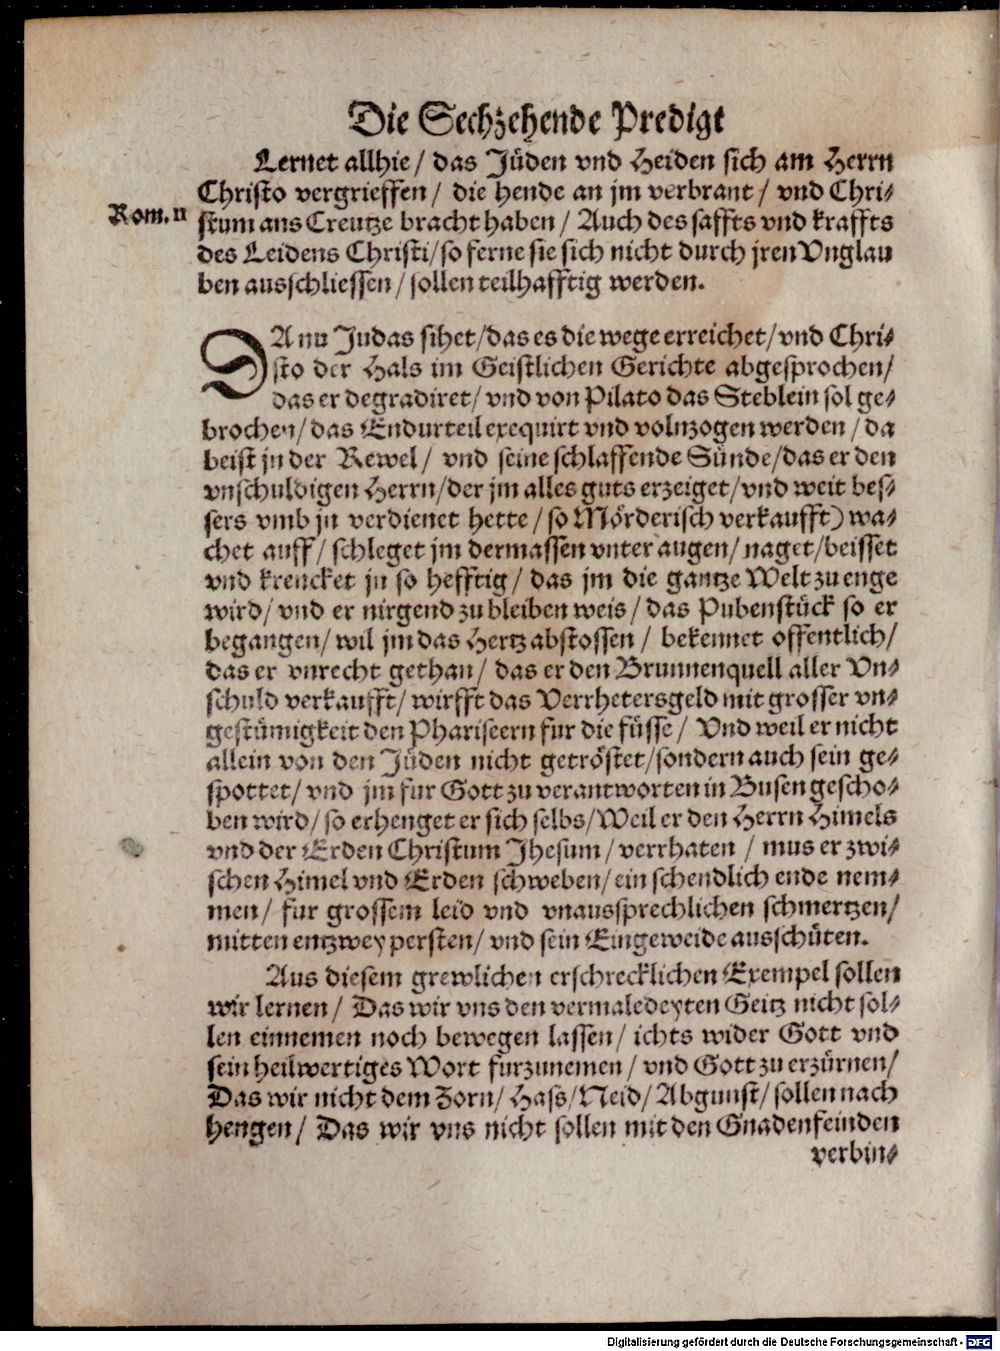 Die Sechzehende Predigt
Lernet allhie/ das Jüden vnd Heiden sich am Herrn
Christo vergrieffen/ die hende an jm verbrant/ vnd Chri-
Rom. 11
stum ans Creutze bracht haben/ Auch des saffts vnd kraffts
des Leidens Christi/ so ferne sie sich nicht durch jren Vnglau
ben ausschliessen/ sollen teilhafftig werden.
DA nu Judas sihet/ das es die wege erreichet/ vnd Chri-
sto der Hals im Geistlichen Gerichte abgesprochen/
das er degradiret/ vnd von Pilato das Steblein sol ge-
brochen/ das Endurteil exequirt vnd volnzogen werden/ da
beist jn der Rewel/ vnd seine schlaffende Sünde/ das er den
vnschuldigen Herrn/ der jm alles guts erzeiget/ vnd weit bes-
sers vmb jn verdienet hette/ so Mörderisch verkaufft) wa-
chet auff/ schleget jm dermassen vnter augen/ naget/ beisset
vnd krencket jn so hefftig/ das jm die gantze Welt zu enge
wird/ vnd er nirgend zu bleiben weis/ das Pubenstück so er
begangen/ wil jm das Hertz abstossen/ bekennet offentlich/
das er vnrecht gethan/ das er den Brunnenquell aller Vn-
schuld verkaufft/ wirfft das Verrhetersgeld mit grosser vn-
gestümigkeit den Phariseern fur die füsse/ Vnd weil er nicht
allein von den Jüden nicht getröstet/ sondern auch sein ge-
spottet/ vnd jm fur Gott zu verantworten in Busen gescho-
ben wird/ so erhenget er sich selbs/ Weil er den Herrn Himels
vnd der Erden Christum Jhesum/ verrhaten/ mus er zwi-
schen Himel vnd Erden schweben/ ein schendlich ende nem-
men/ fur grossem leid vnd vnaussprechlichen schmertzen/
mitten entzwey persten/ vnd sein Eingeweide ausschüten.
Aus diesem grewlichen erschrecklichen Exempel sollen
wir lernen/ Das wir vns den vermaledeyten Geitz nicht sol-
len einnemen noch bewegen lassen/ ichts wider Gott vnd
sein heilwertiges Wort furzunemen/ vnd Gott zu erzürnen/
Das wir nicht dem Zorn/ Hass/ Neid/ Abgunst/ sollen nach
hengen/ Das wir vns nicht sollen mit den Gnadenfeinden
verbin-
Digitalisierung gefördert durch die Deutsche Forschungsgemeinschaft - DFG